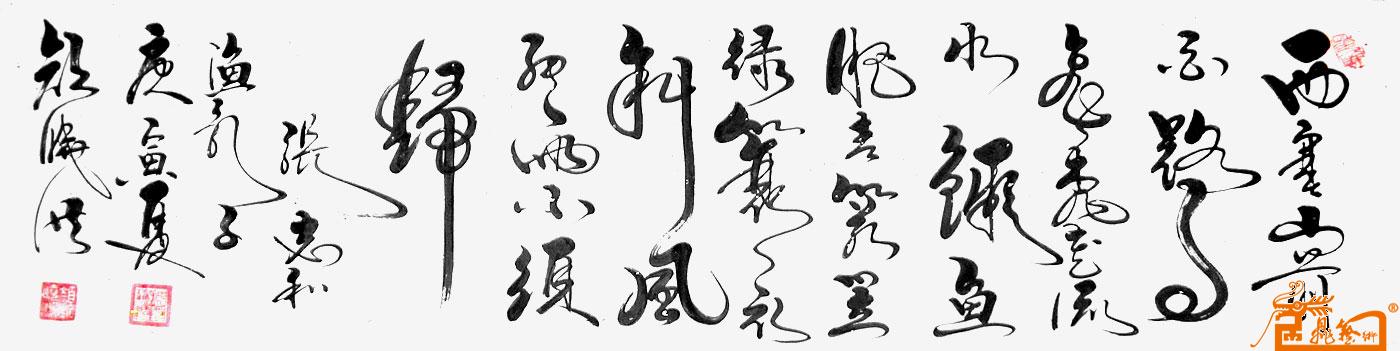 西塞山前
白鹭
飞桃花流
水鳜鱼
肥青箬笠
绿蓑衣
斜风
细雨不须
归
张志和
渔歌子
庚寅夏
胜洪